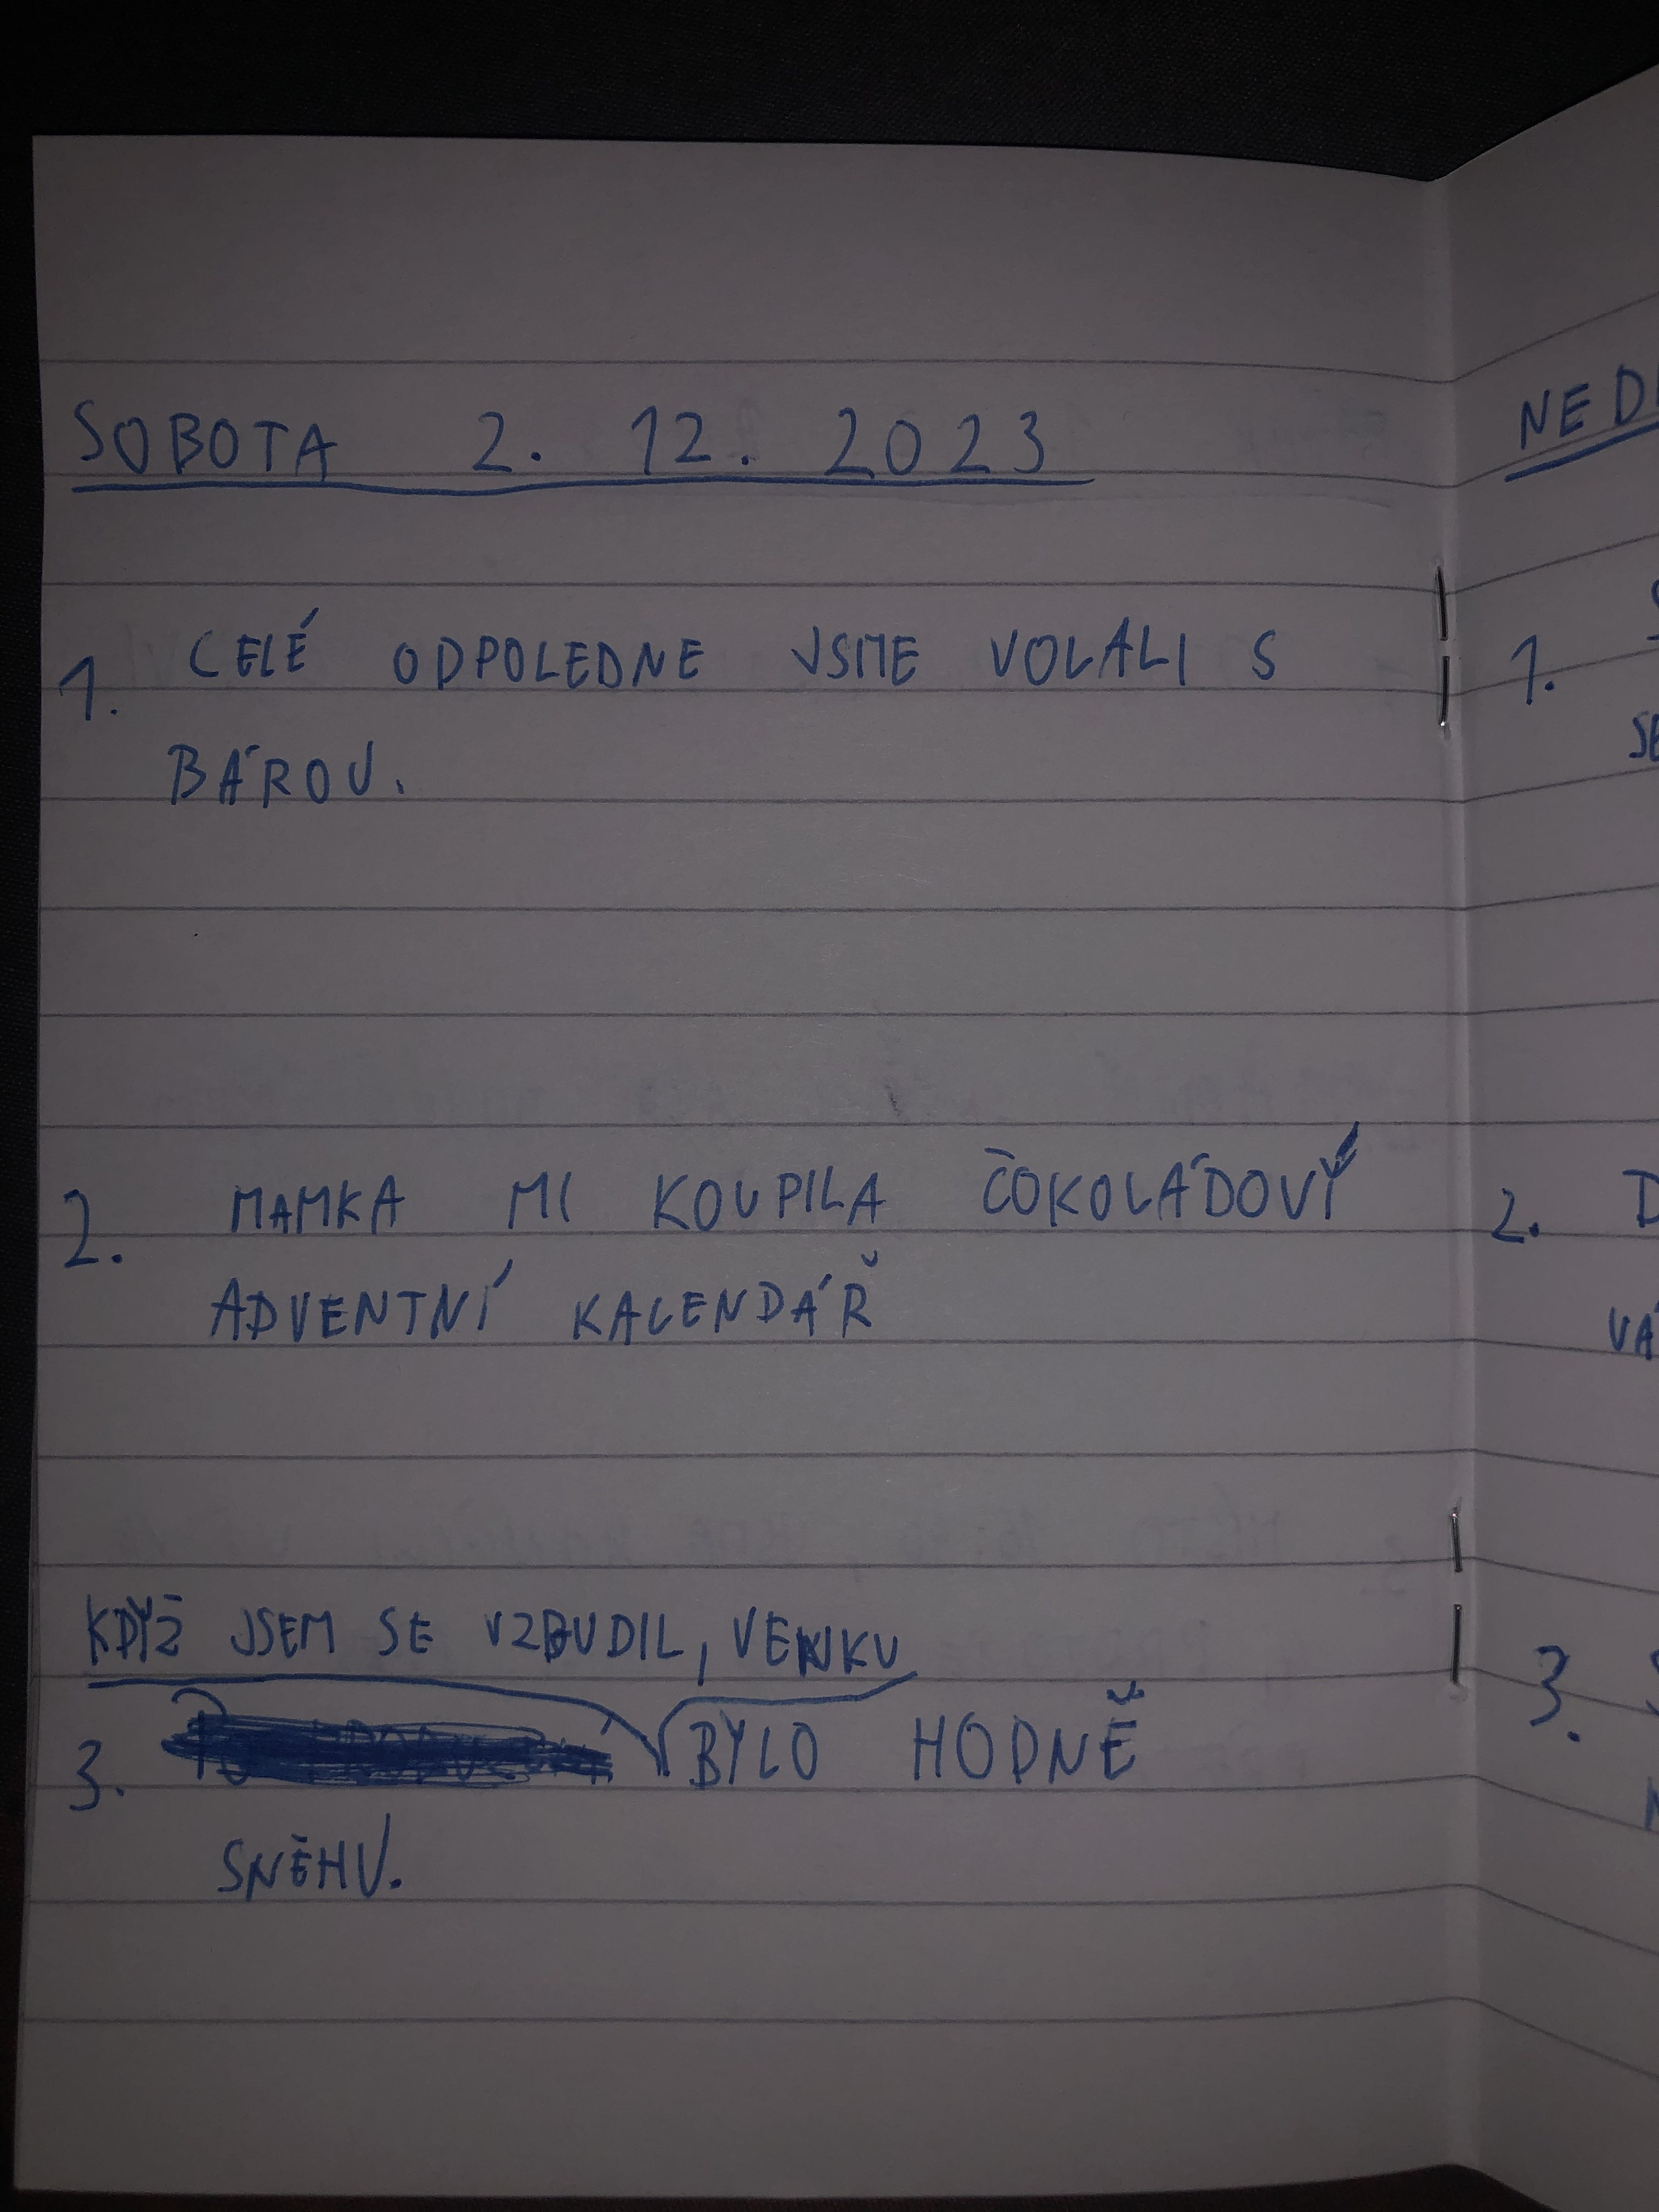 SOBOTA 2. 12. 2023
1. CELÉ ODPOLEDNE JSME VOLALI S
BÁROU.
2. MAMKA MI KOUPILA ČOKOLÁDOVÝ
ADVENTNÍ KALENDÁŘ
KDYŽ JSEM SE VZBUDIL, VENKU
3. BYLO HODNĚ
SNĚHU.
NEDĚ
1.
SE
2. D
VÁ
3.